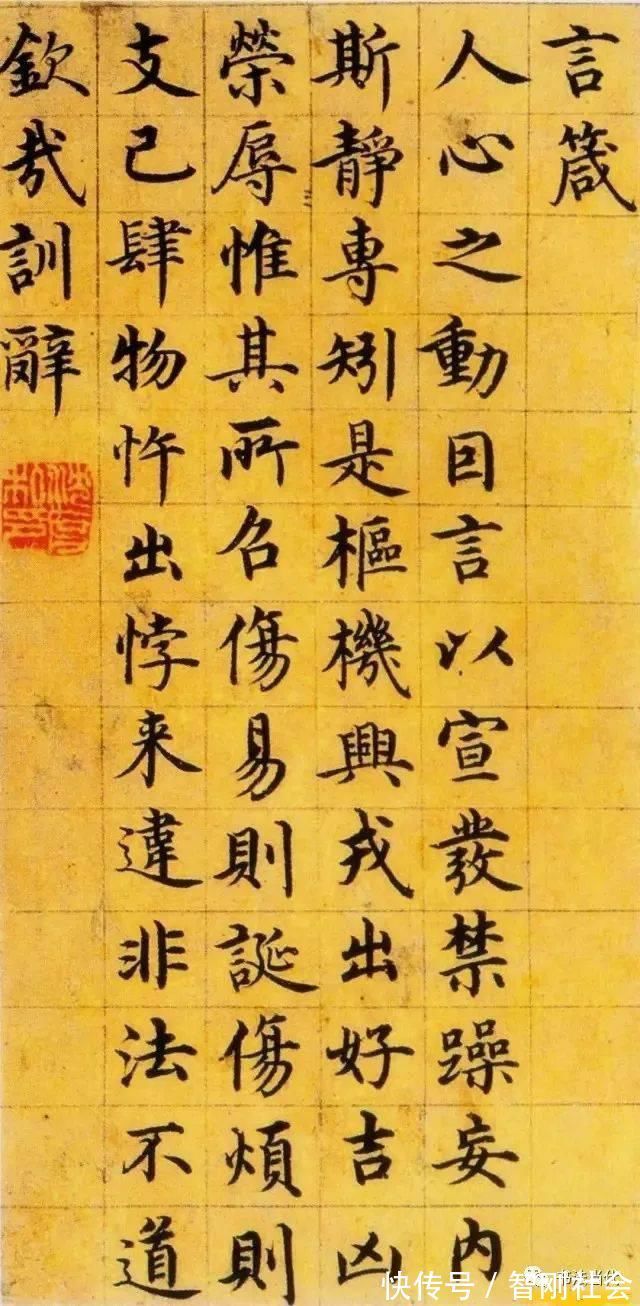 言箴
人心之動因言以宣發禁躁妄内
斯靜專矧是樞機興戎出好吉凶
榮辱惟其所召傷易則誕傷煩則
支己肆物忤出悖来違非法不道
欽哉訓辭
快传号 / 智刚社会